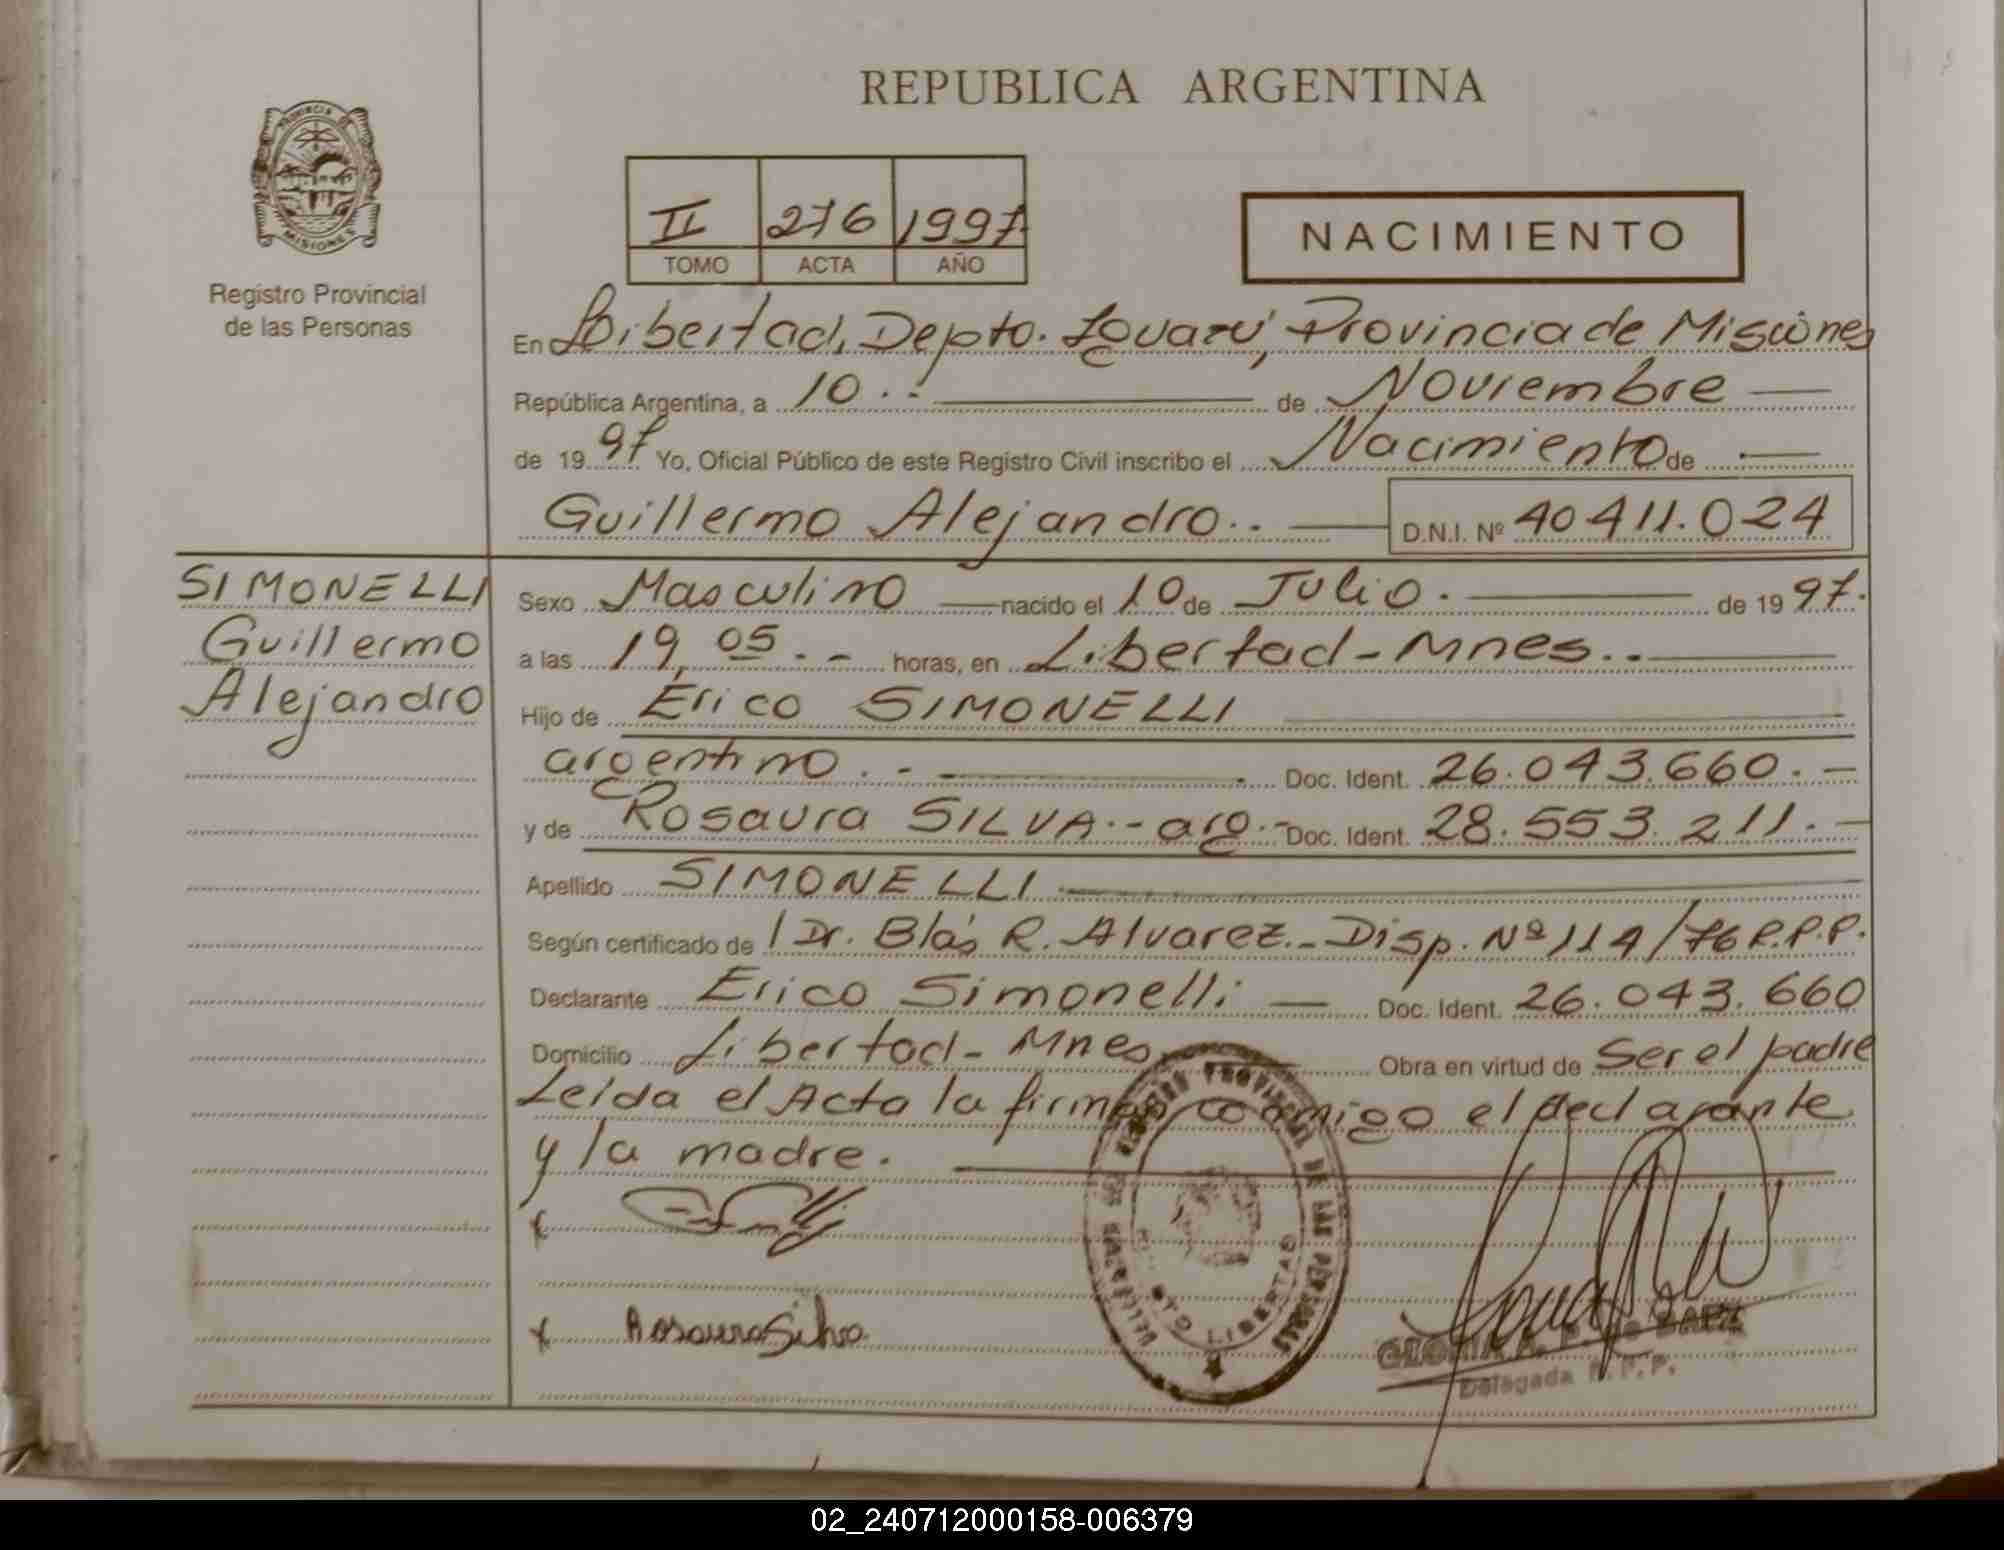 REPUBLICA ARGENTINA
PROVINCIA DE
MISIONES
Registro Provincial
de las Personas
II 276 1997
TOMO ACTA AÑO
NACIMIENTO
En Libertad, Depto. Iguazú, Provincia de Misiones
República Argentina, a 10.- de Noviembre
de 1997 Yo, Oficial Público de este Registro Civil inscribo el Nacimiento de
Guillermo Alejandro.. D.N.I. Nº 40411.024
SIMONELLI
Guillermo
Alejandro
Sexo Masculino nacido el 10 de Julio. de 1997.
a las 19,05.- horas, en Libertad-Mnes..
Hijo de Erico SIMONELLI
argentino.- Doc. Ident. 26.043.660.-
y de Rosaura SILVA.-arg.- Doc. Ident. 28.553.211.-
Apellido SIMONELLI
Según certificado de Dr. Blás R. Alvarez.-Disp. Nº 114/76 R.P.P.
Declarante Erico Simonelli — Doc. Ident. 26.043.660
Domicilio Libertad-Mnes Obra en virtud de Ser el padre
Leída el Acta la firman conmigo el declarante
y la madre.
x
x Rosaura Silva
REGISTRO PROVINCIAL DE LAS PERSONAS
LIBERTAD
GLORIA A. SAEZ
Delegada R.P.P.
02_240712000158-006379